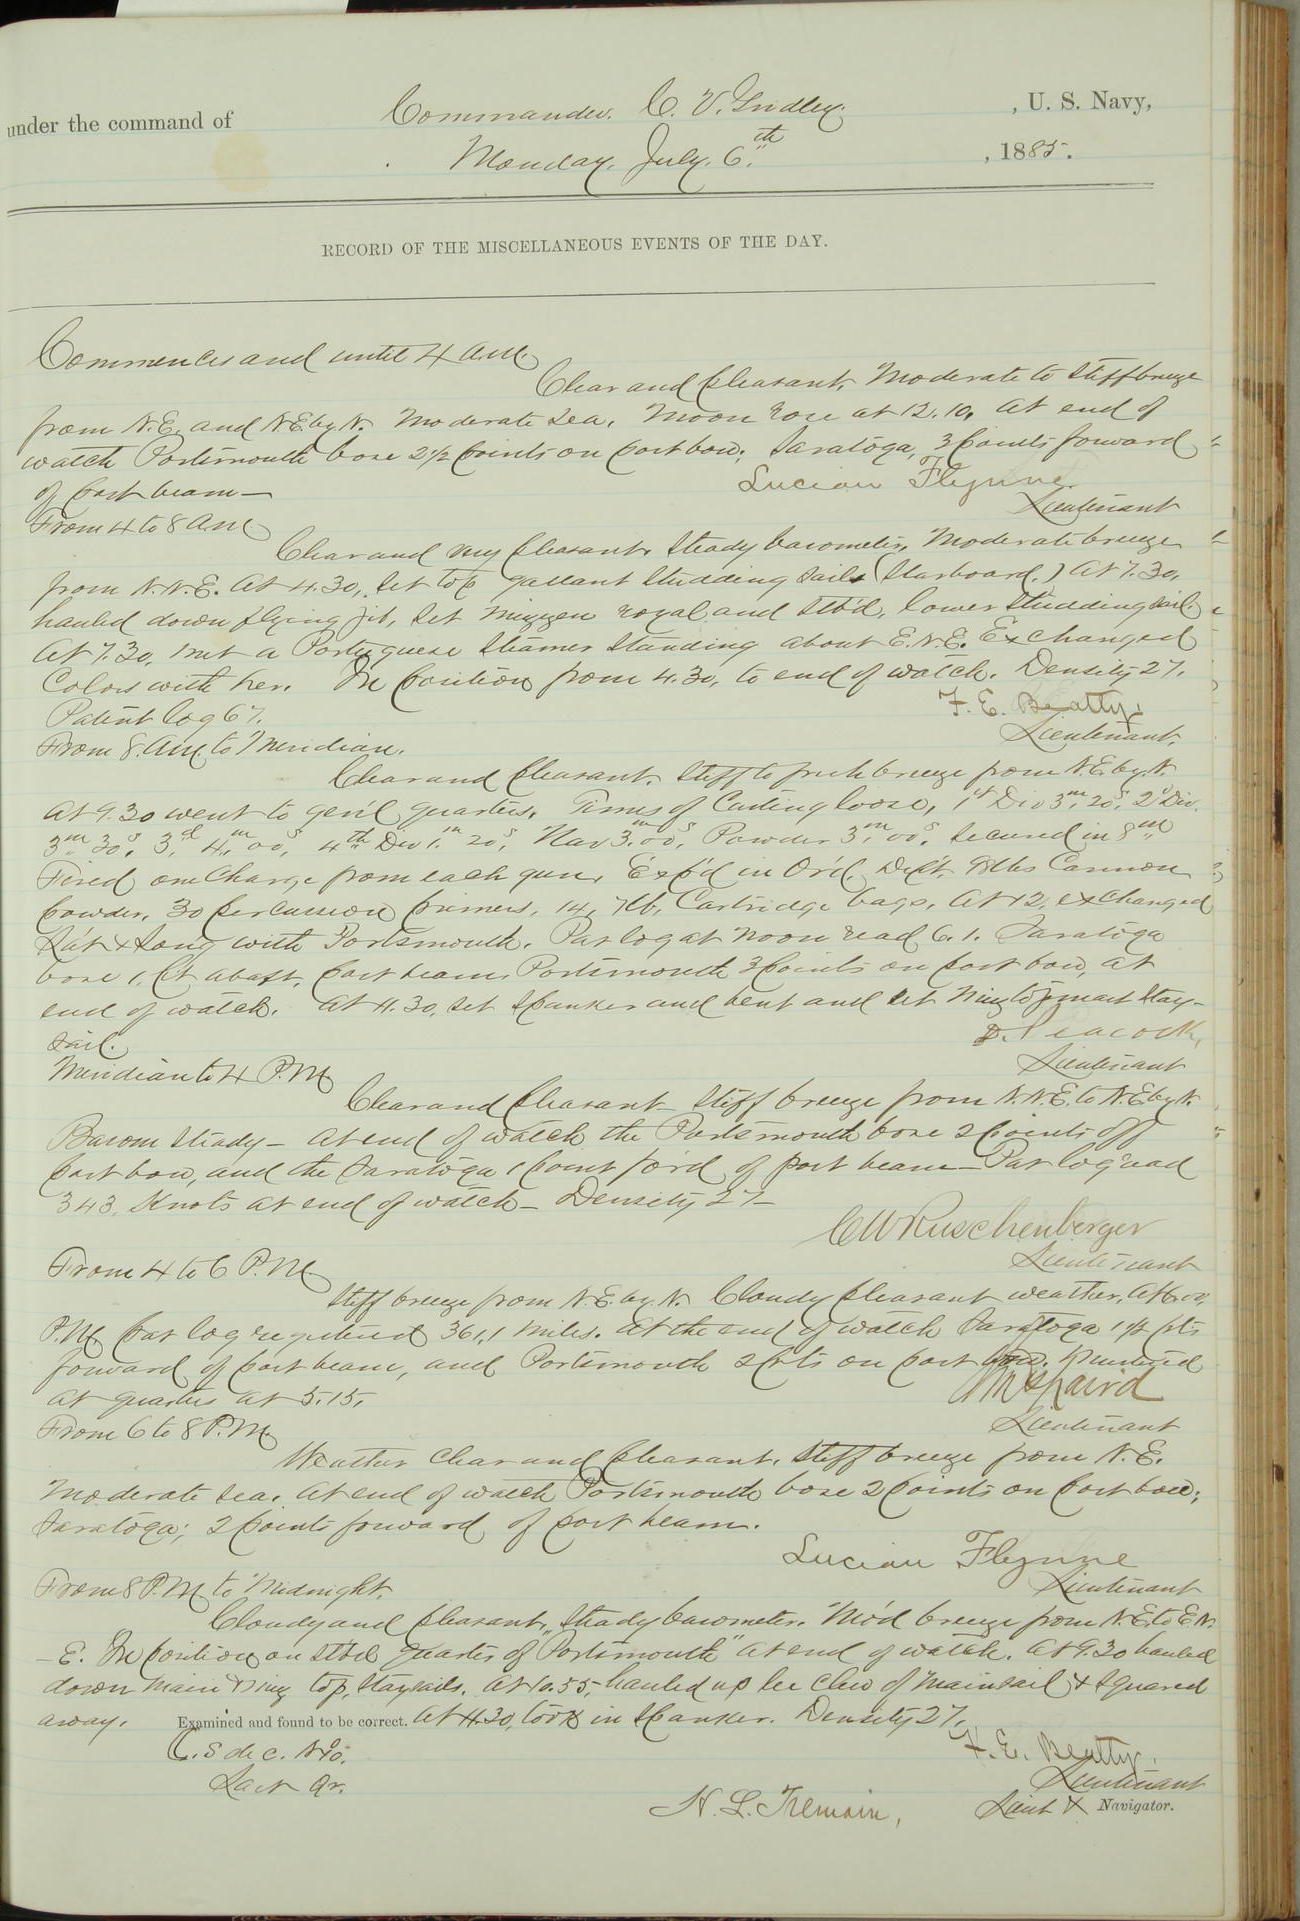 under the command of Commander. C. V. Gridley. , U. S. Navy,
Monday, July. 6th , 1885.
RECORD OF THE MISCELLANEOUS EVENTS OF THE DAY.
Commences and until 4 a.m.
Clear and pleasant. Moderate to stiff breeze
from N.E. and N.E. by N. Moderate sea. Moon rose at 12.10. At end of
watch Portsmouth bore 2 1/2 points on port bow; Saratoga, 3 points forward
of port beam—
Lucian Flynne.
Lieutenant
From 4 to 8 a.m.
Clear and very pleasant. Steady barometer. Moderate breeze
from N.N.E. At 4.30, set top gallant studding sails (starboard.) At 7.30,
hauled down flying jib, set mizzen royal and stb'd. lower studding sail.
At 7.30, met a Portuguese steamer standing about E.N.E. Exchanged
colors with her. In position from 4.30, to end of watch. Density 27.
Patent log 67.
F. E. Beatty.
Lieutenant.
From 8. a.m. to Meridian.
Clear and pleasant. Stiff to fresh breeze from N.E. by N.
At 9.30 went to gen'l quarters. Times of casting loose, 1st Div 3m. 20s. 2d Div.
3m 30s. 3d 4m. 00s, 4th Div 1m. 20s, Nav 3m. 00s, Powder 3m. 00s. Secured in 8m
Fired one charge from each gun. Exp'd in Ord. Dep't. lbs Cannon
powder, 30 percussion primers, 14, 7 lb. Cartridge bags. At 12, exchanged
Lat & Long with Portsmouth. Pat log at noon read 6.1. Saratoga
bore 1. pt abaft, port beam, Portsmouth 3 points on port bow, at
end of watch. At 11.30, set spanker and bent and set miz topmast stay-
sail.
D. Peacock,
Lieutenant
Meridian to 4 P.M.
Clear and pleasant— Stiff breeze from N.N.E. to N.E. by N.
Barom steady— At end of watch the Portsmouth bore 2 points off
port bow, and the Saratoga 1 point for'd of port beam— Pat log read
343, Knots at end of watch— Density 27—
C W Ruschenberger
Lieutenant
From 4 to 6 P.M.
Stiff breeze from N.E. by N. Cloudy pleasant weather. At 6.00,
P.M. pat log registered 361,1 miles. At the end of watch Saratoga 1 1/2 pts
forward of port beam, and Portsmouth 2 pts on port bow. Mustered
at quarters at 5.15.
Lieutenant
From 6 to 8 P.M.
Weather clear and pleasant. Stiff breeze from N.E.
Moderate sea. At end of watch Portsmouth bore 2 points on port bow;
Saratoga; 2 points forward of port beam.
Lucian Flynne
Lieutenant
From 8 P.M. to Midnight.
Cloudy and pleasant, steady barometer. Mod breeze from N.E. to E.N.
—E. In position on stb'd quarter of "Portsmouth" at end of watch. At 9.30 hauled
down main & miz top, staysails. At 10.55, hauled up lee clew of mainsail & squared
away. Examined and found to be correct. At 11.30, took in spanker. Density 27.
F. E. Beatty.
Lieutenant
H. L. Tremain, Lieut & Navigator.